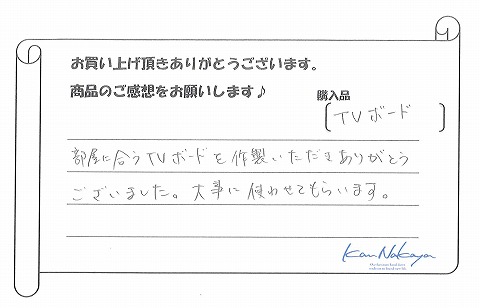 お買い上げ頂きありがとうございます。
商品のご感想をお願いします♪
購入品
[TVボード]
部屋に合うTVボードを作製いただきありがとう
ございました。大事に使わせてもらいます。
Kan Nakaya